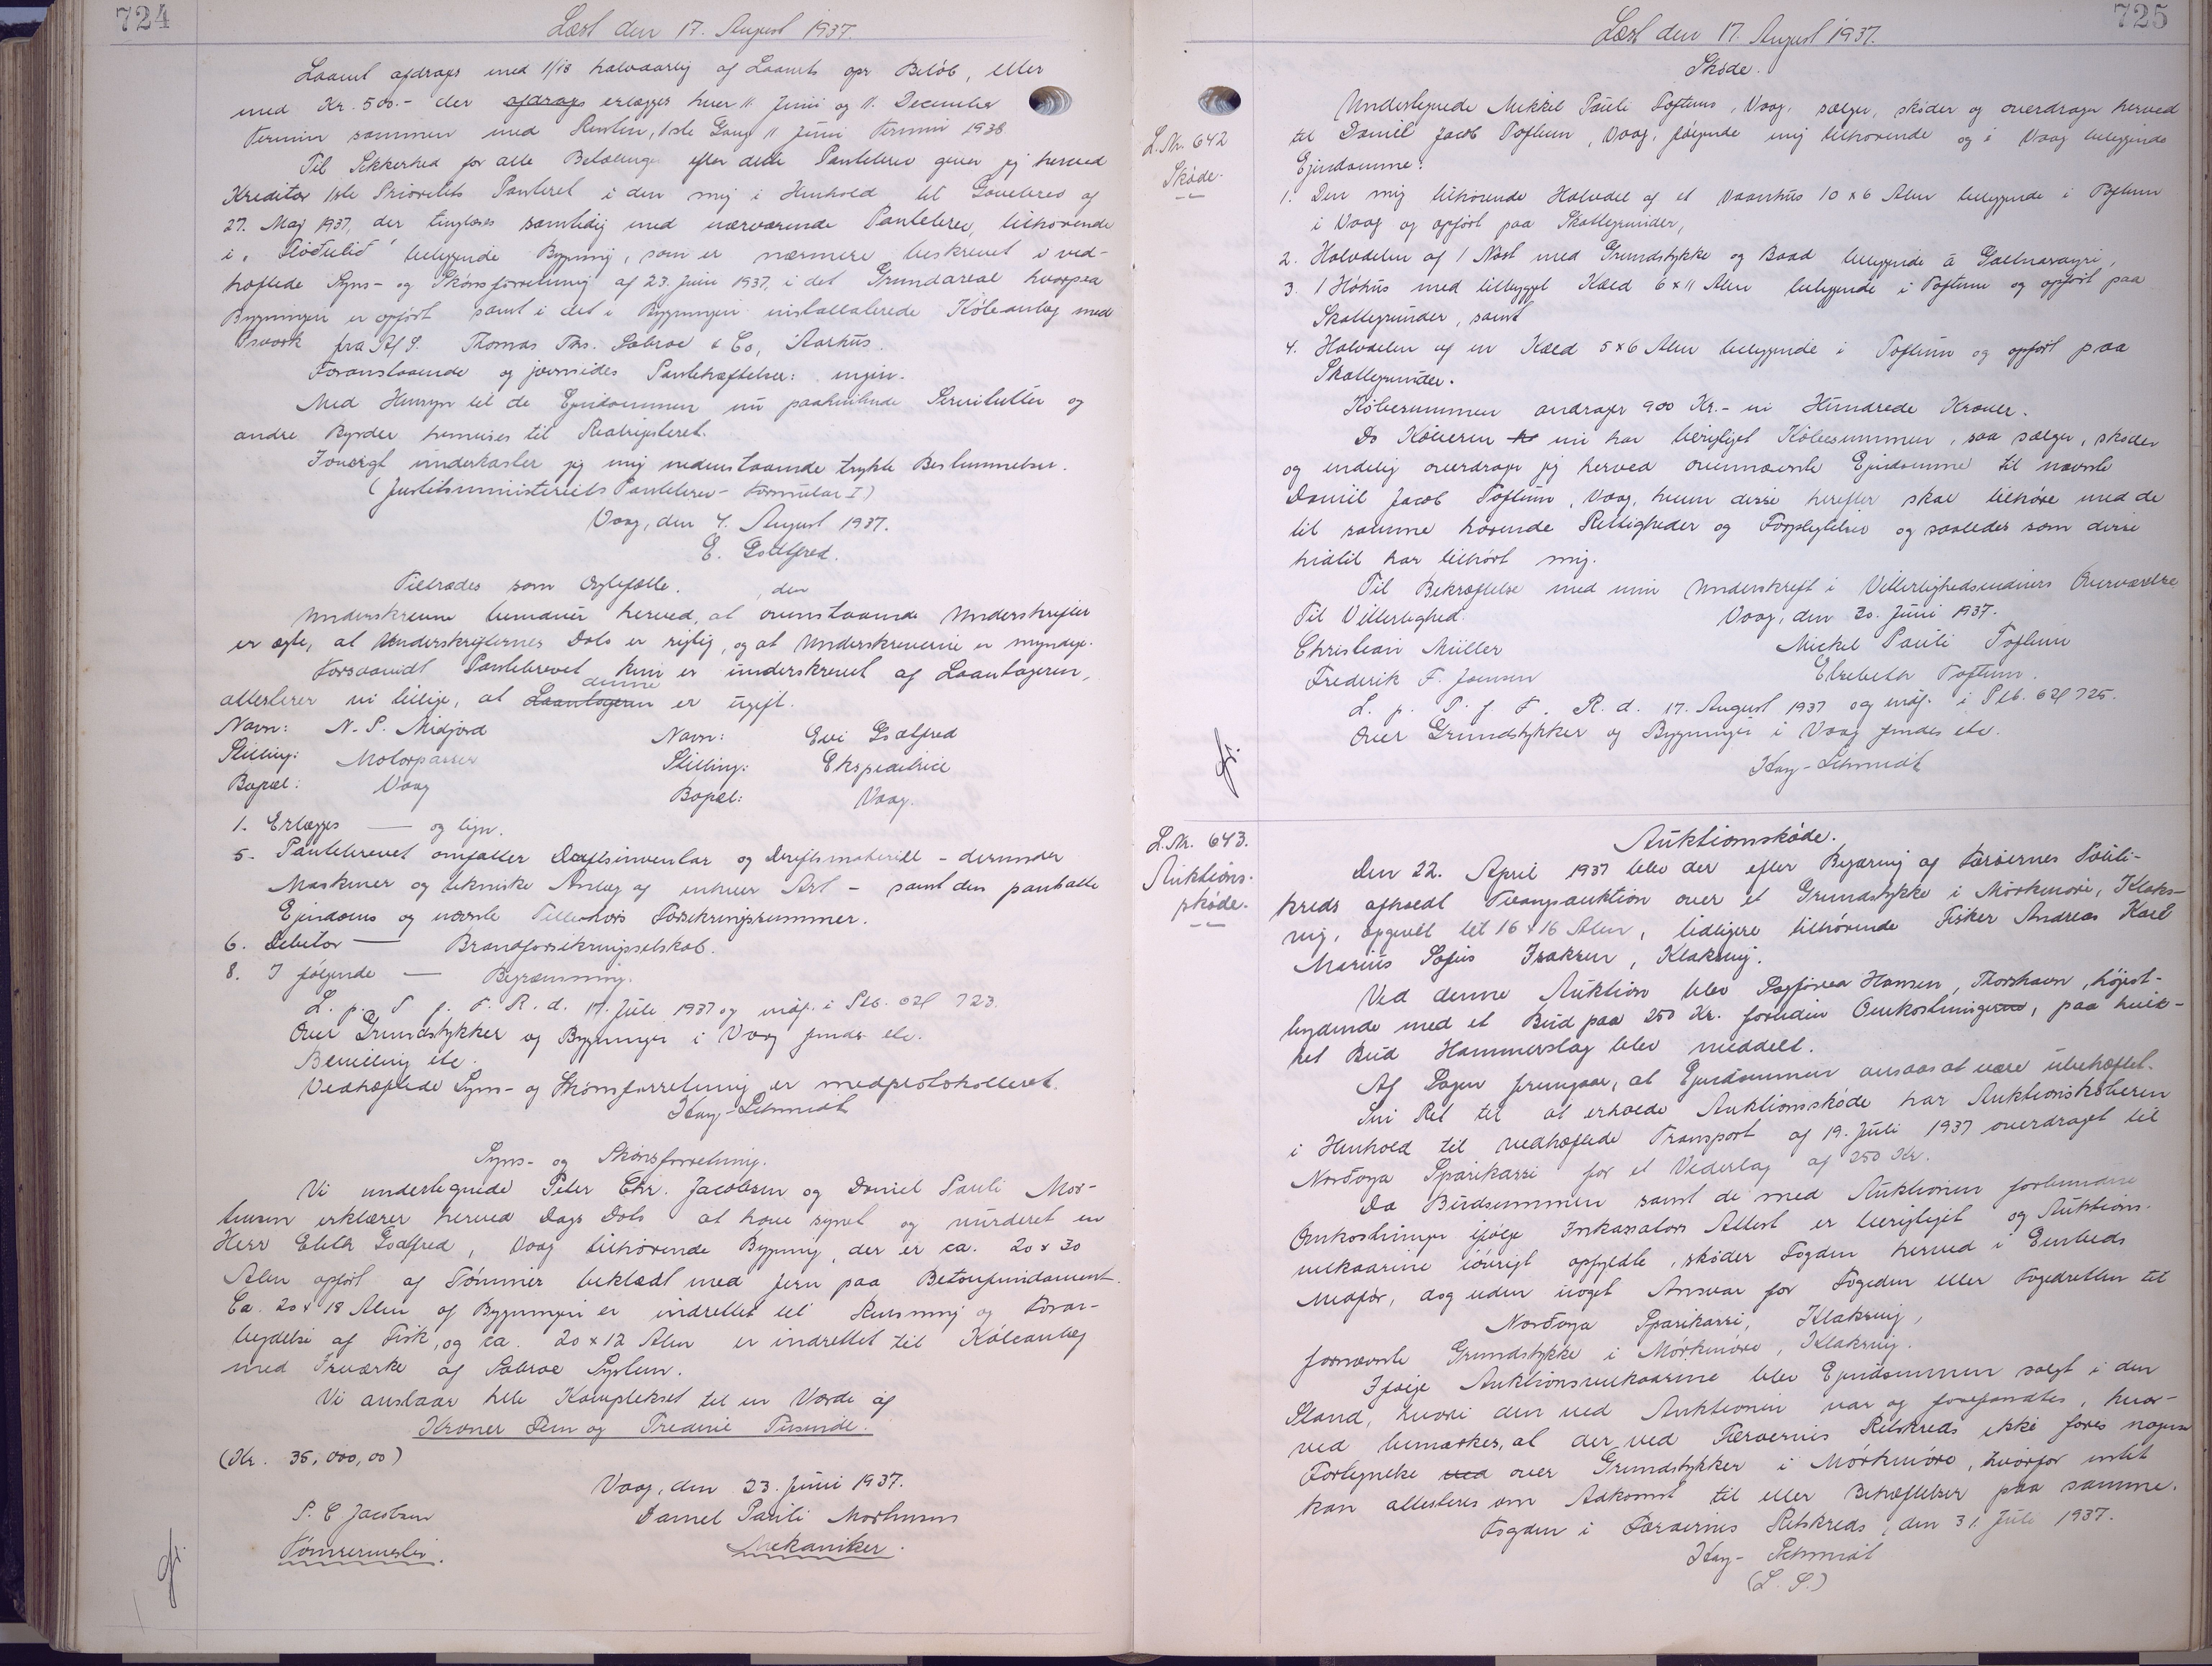 724
Læst den 17. August 1937.
Laanet afdrages med 1/18 halvaarlig af Laanets opr Beløb, eller
med Kr. 500.- der afdrages erlægges hver 11 Juni og 11. December
Termin sammen med Renten, 1ste Gang 11 Juni Termin 1938
Til Sikkerhed for alle Betalinger efter dette Pantebrev giver jeg herved
Kreditor 1ste Prioritets Panteret i den mig i Henhold til Gavebrev af
27. Maj 1937, der tinglæses samtidig med nærværende Pantebrev, tilhørende
i beliggende Bygning, som er nærmere beskrevet i ved-
hæftede Syns- og Skønsforretning af 23. Juni 1937, i det Grundareal hvorpaa
Bygningen er opført samt i det i Bygningen installerede Køleanlæg med
Isværk fra A/S. Thomas Ths. Sabroe & Co, Aarhus.
Foranstaaende og jævnsides Pantehæftelser: ingen.
Med Hensyn til de Ejendommen nu paahvilende Servitutter og
andre Byrder henvises til Realregisteret.
Iøvrigt underkaster jeg mig nedenstaaende trykte Bestemmelser.
(Justitsministeriets Pantebrev- Formular I)
Vaag, den 4. August 1937.
E. Godtfred.
Tiltrædes som Ægtefælle.
den
Underskrevne bevidner herved, at ovenstaaende Underskrifter
er ægte, at Underskrifternes Dato er rigtig, og at Underskriverne er myndige.
Forsaavidt Pantebrevet kun er underskrevet af Laantageren,
denne
attesterer vi tillige, at Laantageren er ugift.
Navn: N. P. Midjord Navn: Evi Godtfred
Stilling: Motorpasser Stilling: Ekspeditrice
Bopæl: Vaag Bopæl: Vaag.
1. Erlægges — og lign.
5. Pantebrevet omfatter Driftsinventar og Driftsmateriel - derunder
Maskiner og tekniske Anlæg af enhver Art - samt den pantsatte
Ejendoms og nævnte Tilbehørs Forsikringssummer.
6. Debitor — Brandforsikringsselskab.
8. I følgende — Begrænsning.
L. p. a T f. F. R. d. 17. Juli 1937 og indf. i Ptb. 62 f 723.
Over Grundstykker og Bygninger i Vaag findes etc.
Bevilling etc.
Vedhæftede Syns- og Skønsforretning er medprotokolleret.
Kay-Schmidt
Syns- og Skønsforretning.
Vi undertegnede Peter Chr. Jacobsen og Daniel Pauli Mor-
tensen erklærer herved Dags Dato at have synet og vurderet en
Herr Godtfred, Vaag tilhørende Bygning, der er ca. 20 x 30
Alen opført af Tømmer beklædt med Jern paa Betonfundament.
Ca. 20 x 18 Alen af Bygningen er indrettet til Rensning og Forar-
bejdelse af Fisk, og ca. 20 x 12 Alen er indrettet til Køleanlæg
med Isværke af Sabroe System.
Vi anslaar hele Komplekset til en Værdi af
Kroner Fem og Tredive Tusinde.
(Kr. 35,000,00)
Vaag, den 23. Juni 1937.
P. C Jacobsen Daniel Pauli Mortensen
Tømrermester. Mekaniker.
725
Læst den 17. August 1937.
Skøde.
L. Nr. 642
Skøde.
Undertegnede Mikkel Pauli Toftum, Vaag, sælger, skøder og overdrager herved
til Daniel Jacob Toftum, Vaag, følgende mig tilhørende og i Vaag beliggende
Ejendomme:
1. Den mig tilhørende Halvdel af et Vaanhus 10 x 6 Alen beliggende i Toftum
i Vaag og opført paa Skattegrunder,
2. Halvdelen af 1 Nøst med Grundstykke og Baad beliggende á
3. 1 Høhus med tilbygget Kæld 6 x 11 Alen beliggende i Toftum og opført paa
Skattegrunder, samt
4. Halvdelen af en Kæld 5 x 6 Alen beliggende i Toftum og opført paa
Skattegrunder.
Købesummen andrager 900 Kr.- ni Hundrede Kroner.
Da Køberen nu har berigtiget Købesummen, saa sælger, skøder
og endelig overdrager jeg herved ovennævnte Ejendomme til nævnte
Daniel Jacob Toftum, Vaag, hvem disse herefter skal tilhøre med de
til samme hørende Rettigheder og Forpligtelser og saaledes som disse
hidtil har tilhørt mig.
Til Bekræftelse med min Underskrift i Vitterlighedsvidners Overværelse
Til Vitterlighed. Vaag, den 30. Juni 1937.
Christian Müller Mickel Pauli Toftum
Frederik F. Joensen Elsebeth Toftum.
L. p. T. f F. R. d. 17. August 1937 og indf. i Ptb. 62 f 725.
Over Grundstykker og Bygninger i Vaag findes etc.
Kay-Schmidt
L. Nr. 643.
Auktions-
skøde.
Auktionsskøde.
Den 22. April 1937 blev der efter Begæring af Færøernes Politi-
kreds afholdt Tvangsauktion over et Grundstykke i Mörkmóre, Klaks-
vig, opgivet til 16 x 16 Alen, tidligere tilhørende Fisker Andreas Karl
Marius Sofus Isaksen, Klaksvig.
Ved denne Auktion blev Sagfører Hansen, Thorshavn, højest-
bydende med et Bud paa 250 Kr. foruden Omkostningerne, paa hvil-
ket Bud Hammerslag blev meddelt.
Af Sagen fremgaar, at Ejendommen ansaas at være ubehæftet.
Sin Ret til at erholde Auktionsskøde har Auktionskøberen
i Henhold til vedhæftede Transport af 19. Juli 1937 overdraget til
Norðoya Sparikassi for et Vederlag af 250 Kr.
Da Budsummen samt de med Auktionen forbundne
Omkostninger ifølge Inkassators Attest er berigtiget og Auktions-
vilkaarene iøvrigt opfyldte, skøder Fogden herved i Embeds
Medfør, dog uden noget Ansvar for Fogeden eller Fogedretten til
Norðoya Sparikassi, Klaksvig,
fornævnte Grundstykke i Mörkmóre, Klaksvig.
Ifølge Auktionsvilkaarene blev Ejendommen solgt i den
Stand, hvori den ved Auktionen var og forefandtes, hvor-
ved bemærkes, at der ved Færøernes Retskreds ikke føres nogen
Fortegnelse ved over Grundstykker i Mörkmóre, hvorfor intet
kan attesteres om Adkomst til eller Behæftelser paa samme.
Fogden i Færøernes Retskreds, den 31. Juli 1937.
Kay-Schmidt
(L. S.)